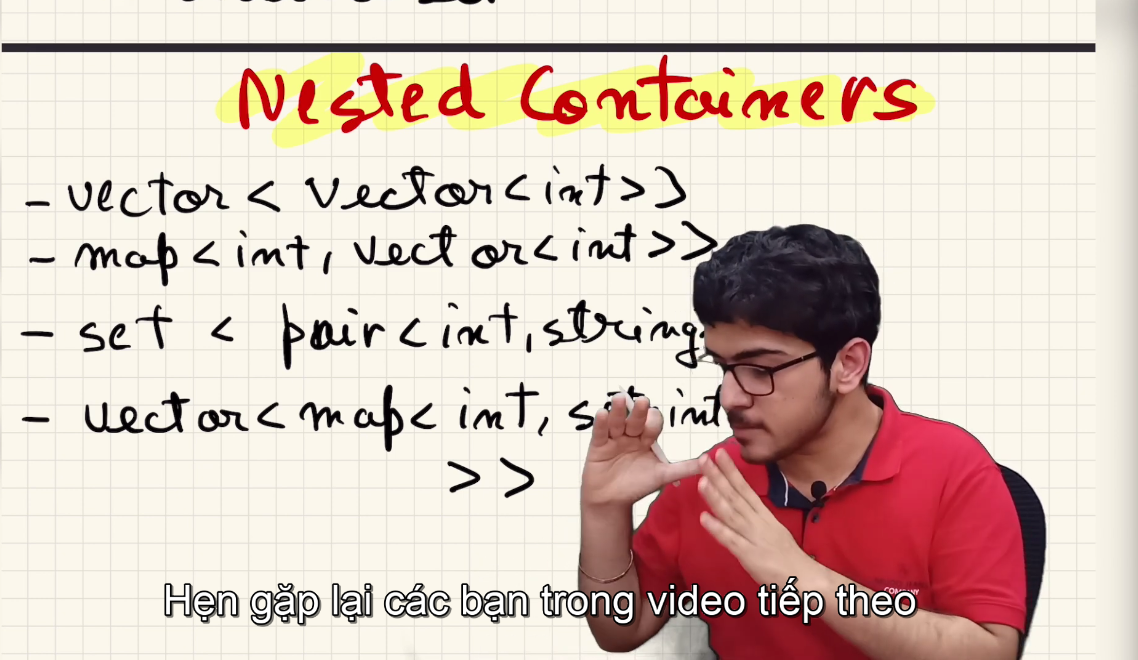 Nested Containers
- vector < vector<int>>
- map<int, vector<int>>
- set < pair<int, string
- vector<map< int, set int
>>
COMPANY
Hẹn gặp lại các bạn trong video tiếp theo